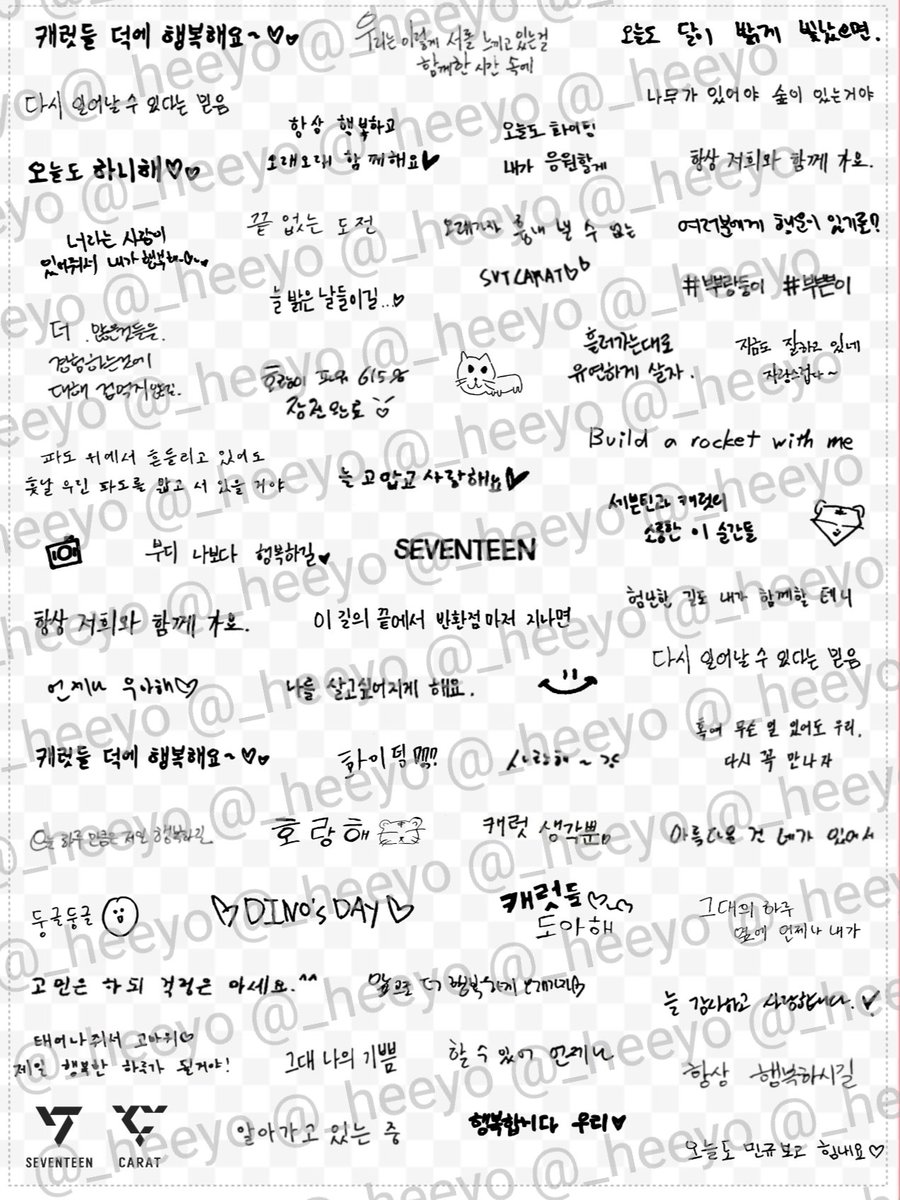 캐럿들 덕에 행복해요~♡♡
우리는 이렇게 서로 느끼고 있는걸
함께한 시간 속에
오늘도 달이 밝게 빛났으면.
다시 일어날 수 있다는 믿음
나무가 있어야 숲이 있는거야
항상 행복하고
오래오래 함께해요♥
오늘도 화이팅
내가 응원할게
오늘도 하니해♡♡
항상 저희와 함께 가요.
너라는 사람이
있어줘서 내가 행복해~♡~
끝 없는 도전
오래가자 흉내 낼 수 없는
SVT CARAT♡♡
여러분에게 행운이 있기를?
늘 밝은 날들이길...♡
#뿌랑둥이 #부쁜이
더 많은것들을
경험하는것에
대해 겁먹지 않길.
호랑이 파워 615%
장전완료
흘러가는대로
유연하게 살자.
지금도 잘하고 있네
자랑스럽다~
Build a rocket with me
파도 위에서 흔들리고 있어도
훗날 우린 파도를 밟고 서 있을 거야
늘 고맙고 사랑해요♥
세븐틴과 캐럿의
소중한 이 순간들
부디 나보다 행복하길♥
SEVENTEEN
험난한 길도 내가 함께할 테니
항상 저희와 함께 가요.
이 길의 끝에서 반환점마저 지나면
다시 일어날 수 있다는 믿음
언제나 우아해♡
나를 살고싶어지게 해요.
혹여 무슨 일 있어도 우리.
다시 꼭 만나자
캐럿들 덕에 행복해요~♡♡
화이팅!!!
사랑해~
오늘 하루만큼은 제일 행복하길
호랑해
캐럿 생각뿐
아름다운 건 네가 있어서
둥글둥글
♡DINO's DAY♡
캐럿들♡
도아해
그대의 하루
옆에 언제나 내가
고민은 하되 걱정은 마세요.^^
앞으로 더 행복하게 오래가자♡
늘 감사하고 사랑합니다.♥
태어나줘서 고마워♡
제일 행복한 하루가 될거야!
그대 나의 기쁨
할 수 있어 언제나
항상 행복하시길
SEVENTEEN
CARAT
알아가고 있는 중
행복합니다 우리♥
오늘도 민규보고 힘내요♡
@_heeyo